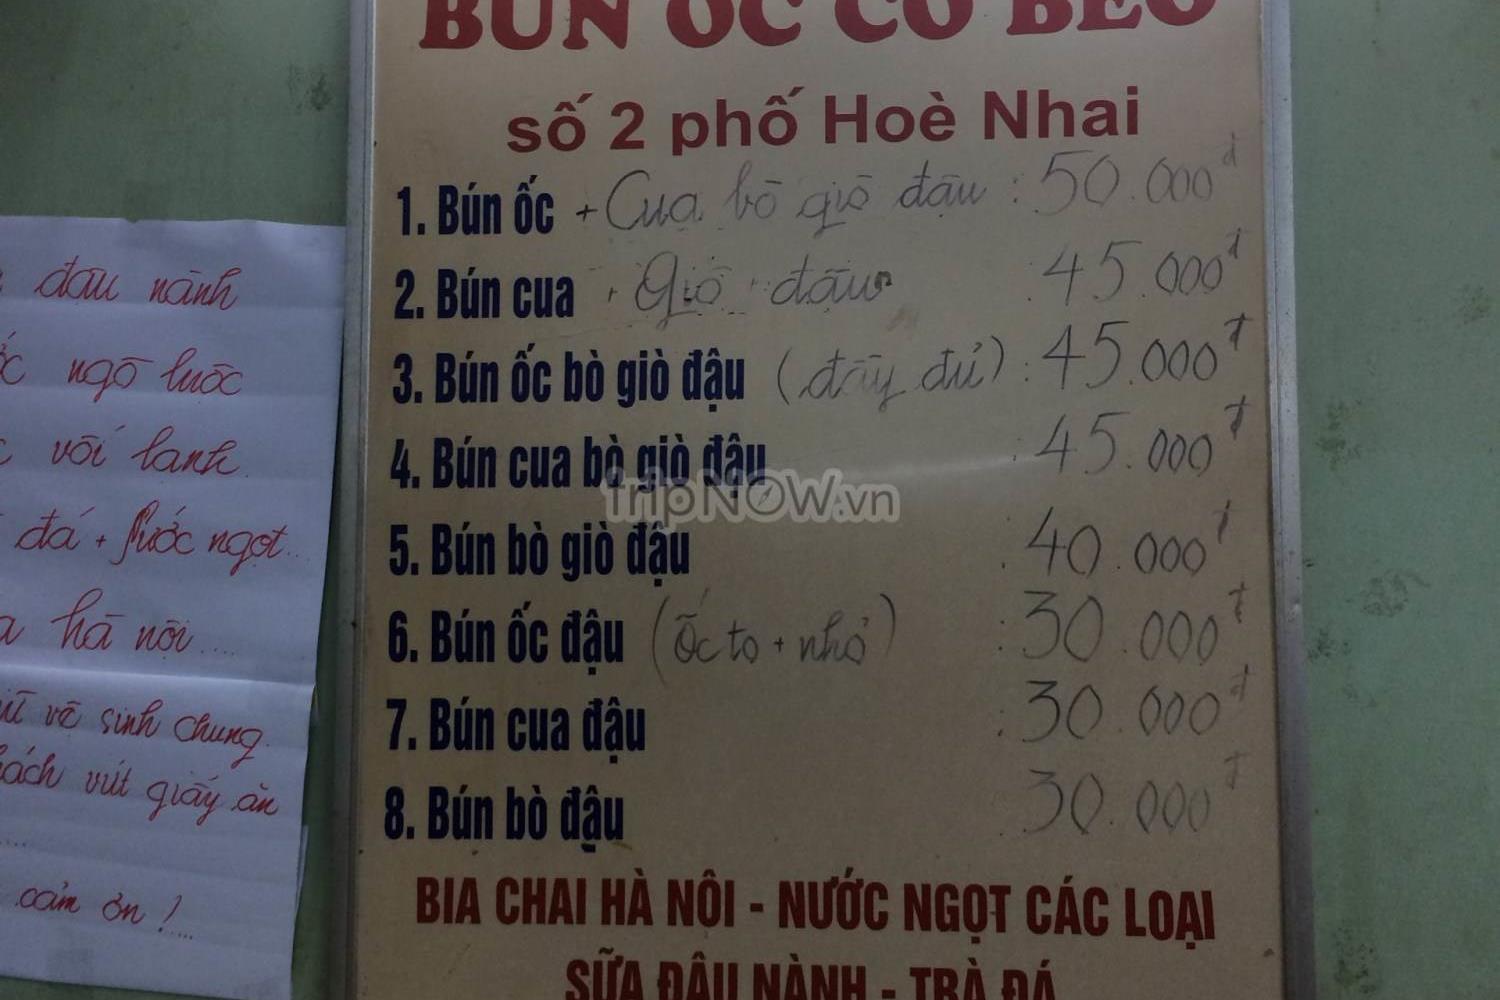 BÚN ỐC CÔ BÉO
số 2 phố Hoè Nhai
1. Bún ốc + Cua bò giò đậu : 50.000đ
2. Bún cua + Giò đậu : 45.000đ
3. Bún ốc bò giò đậu (đầy đủ) : 45.000đ
4. Bún cua bò giò đậu : 45.000đ
5. Bún bò giò đậu : 40.000đ
6. Bún ốc đậu (ốc to + nhỏ) : 30.000đ
7. Bún cua đậu : 30.000đ
8. Bún bò đậu : 30.000đ
BIA CHAI HÀ NỘI - NƯỚC NGỌT CÁC LOẠI
SỮA ĐẬU NÀNH - TRÀ ĐÁ
đậu nành
ngô luộc
vối lanh
đá + nước ngọt...
hà nội....
vệ sinh chung.
vứt giấy ăn
....
cảm ơn!....
tripNOW.vn